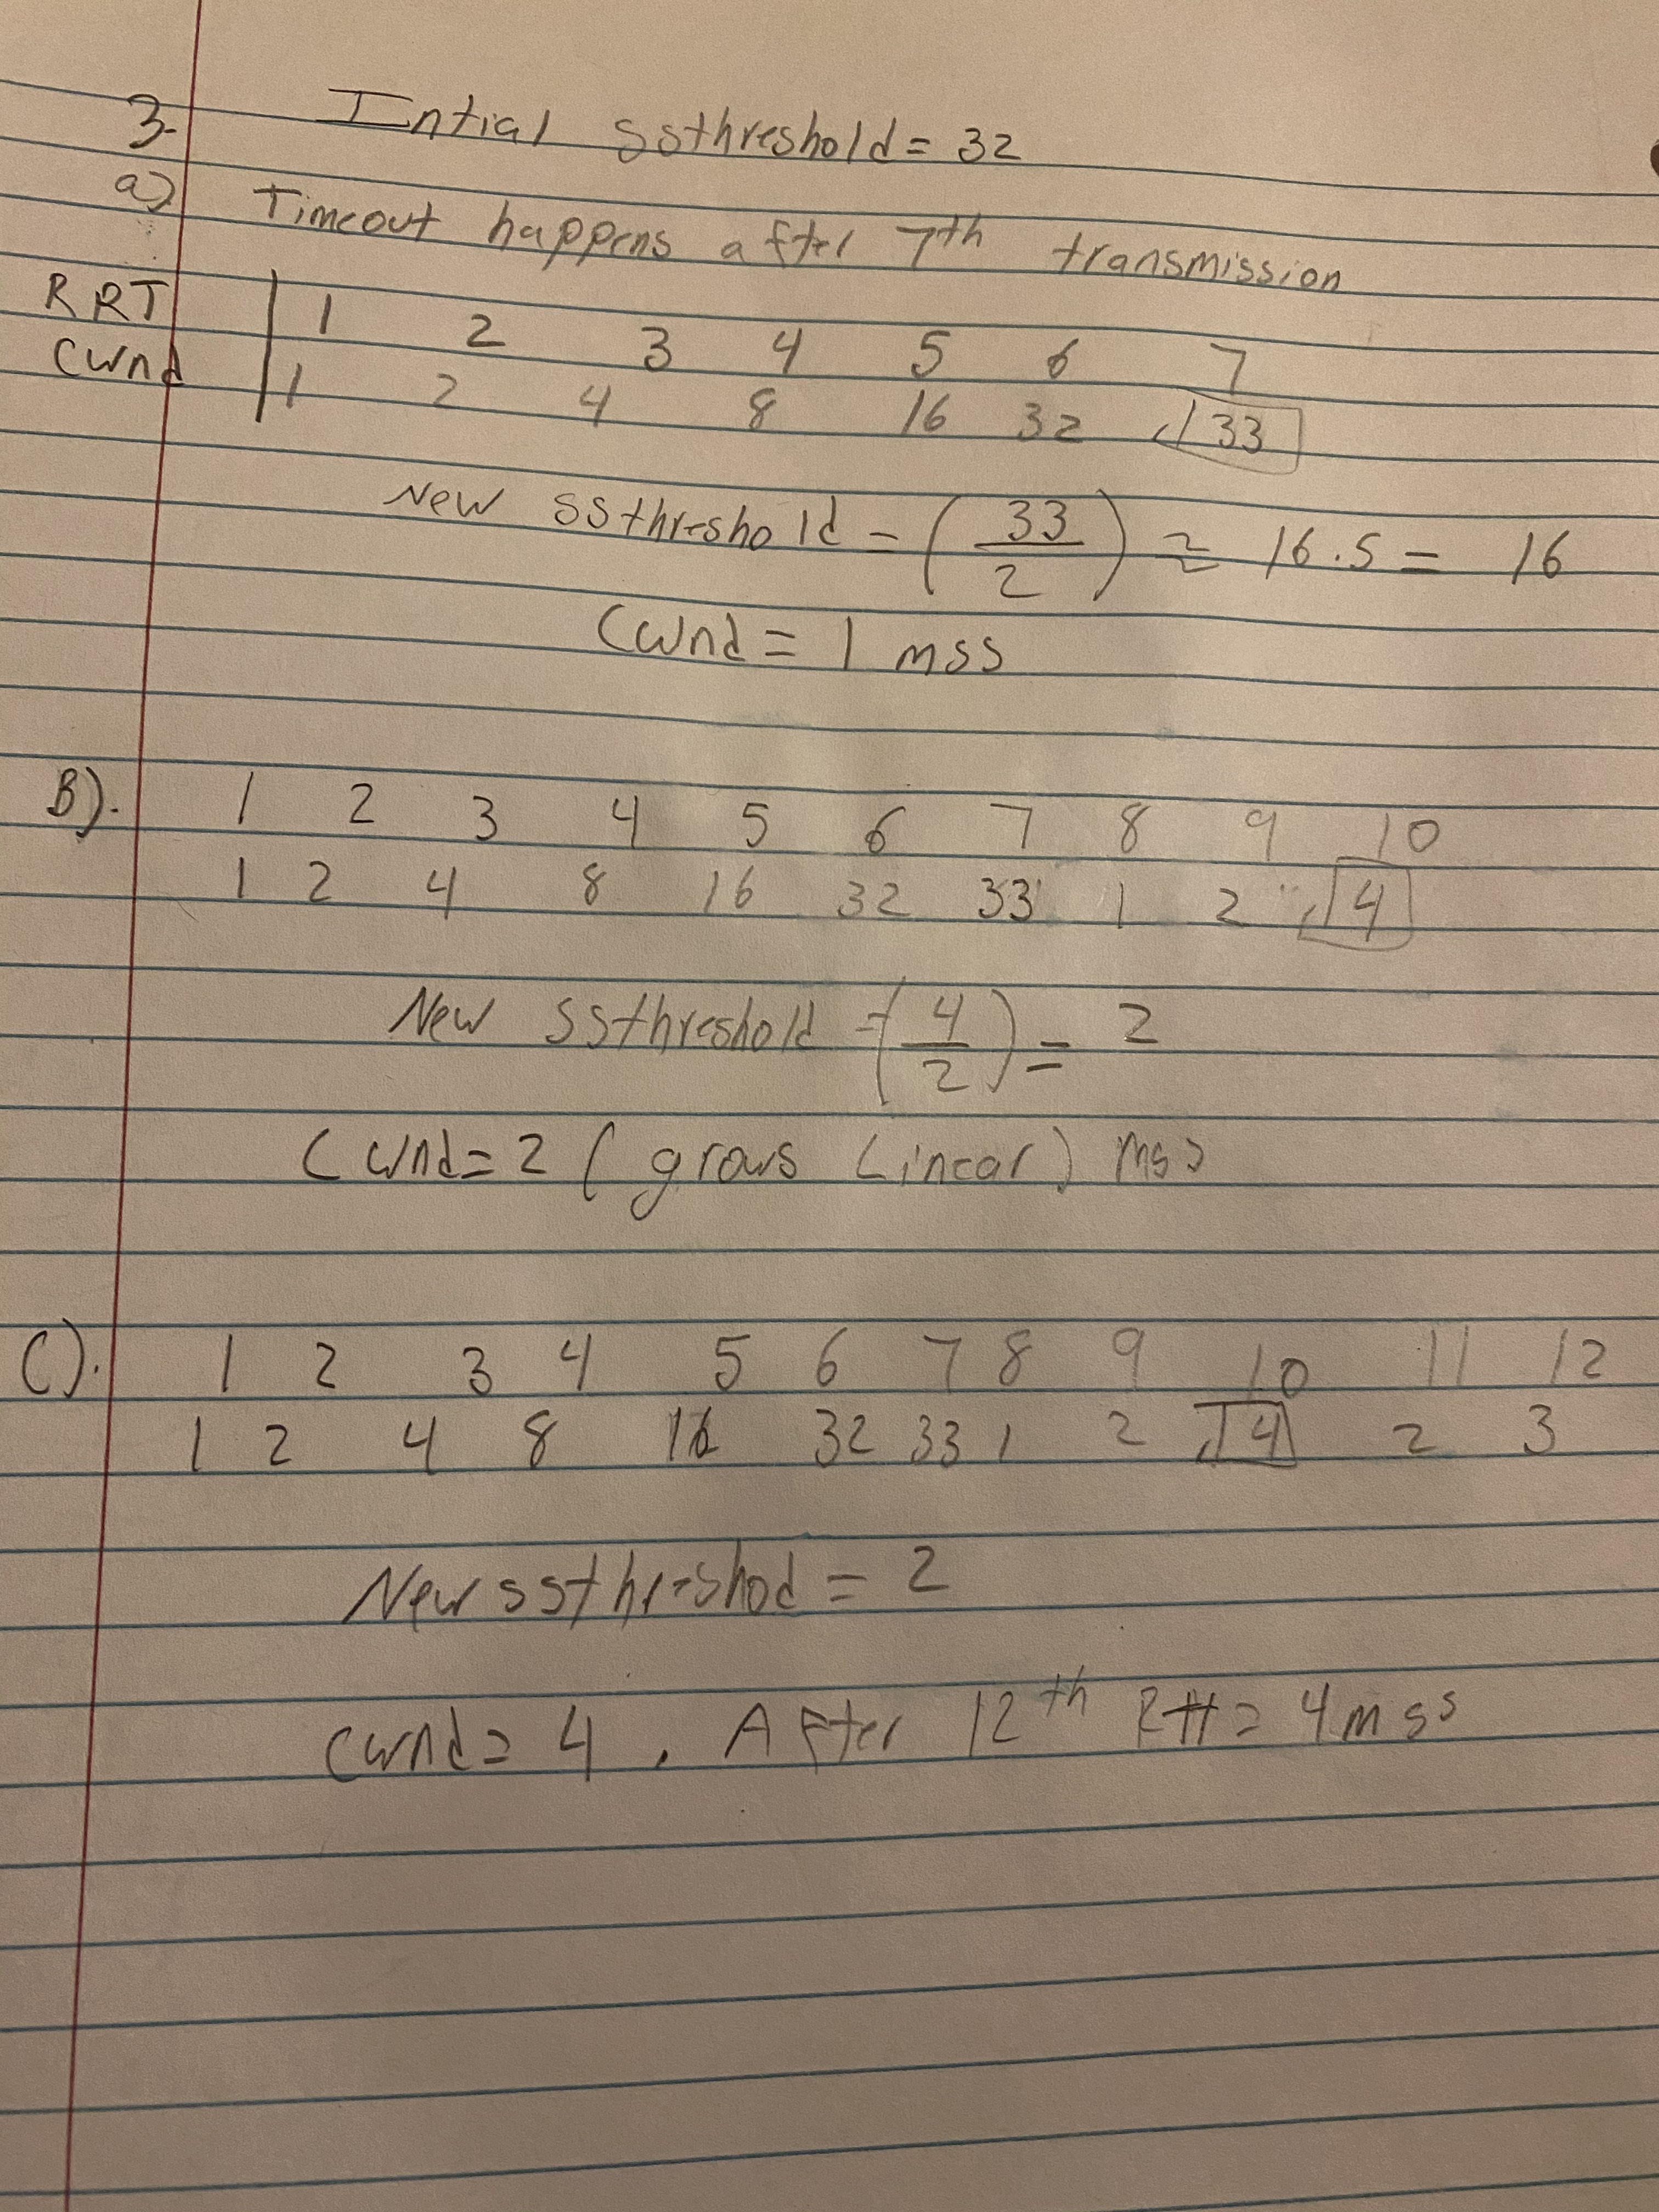 3. Intial ssthreshold = 32
a) Timeout happens after 7th transmission
RRT | 1 2 3 4 5 6 7
Cwnd | 1 2 4 8 16 32 33
New ssthreshold = (33/2) ≈ 16.5 = 16
Cwnd = 1 mss
B). 1 2 3 4 5 6 7 8 9 10
1 2 4 8 16 32 33 1 2 4
New ssthreshold = (4/2) = 2
Cwnd = 2 (grows Linear) mss
C). 1 2 3 4 5 6 7 8 9 10 11 12
1 2 4 8 16 32 33 1 2 4 2 3
New ssthreshod = 2
cwnd = 4 . After 12th Rtt = 4 mss